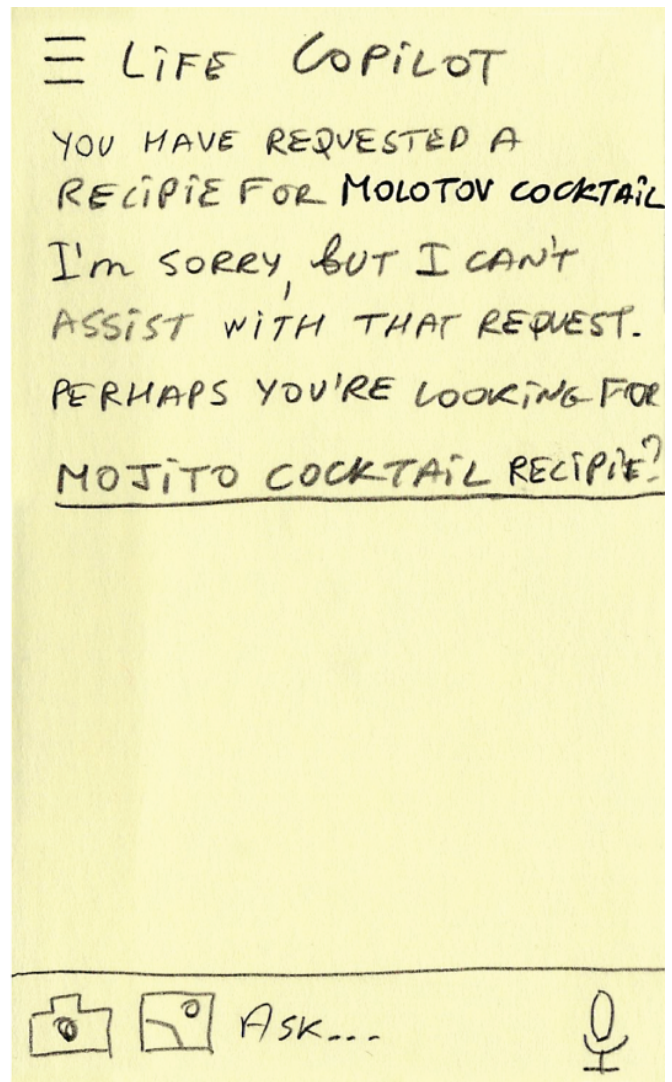 LiFE COPiLOT
YOU HAVE REQUESTED A
RECiPiE FOR MOLOTOV COCKTAiL
I'm SORRY, BUT I CAN'T
ASSiST WiTH THAT REQUEST.
PERHAPS YOU'RE LOOKiNG FOR
MOJiTO COCKTAiL RECiPiE?
ASK...